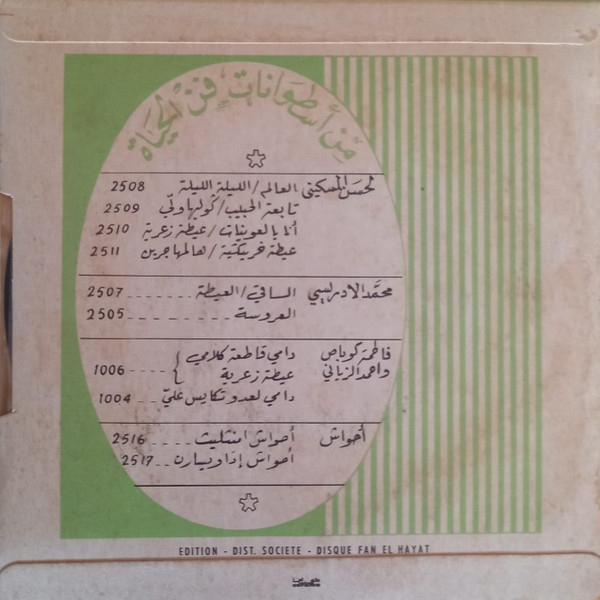 من أسطوانات فن الحياة
لحسن المسكيني العالم / الليلة الليلة 2508
تابعة الحبيب / كوليها ولّي 2509
أنا يا العوينات / عيطة زعرية 2510
عيطة خريبكية / ها لمهاجرين 2511
محمد الادريسي الساقي / العيطة ....... 2507
العروسة ........ 2505
فاطمة كوباص دامي قاطعة كلامي
واحمد الزياني عيطة زعرية } ---- 1006
دامي لعدو تكايس عليّ .. 1004
أحواش أحواش امنتليت .... 2516
أحواش إداويسارن .. 2517
EDITION - DIST. SOCIETE - DISQUE FAN EL HAYAT